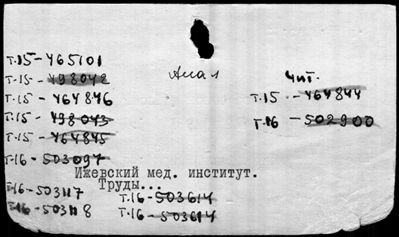 Т.15-465101
Т.15-498042
Т.15-464846
Т.15-498043
Т.15-464845
Т.16-503097
Т.16-503117
Т.16-503118
Чит.
Т.15-464844
Т.16-502900
Ижевский мед. институт.
Труды...
Т.16-503614
Т.16-503614